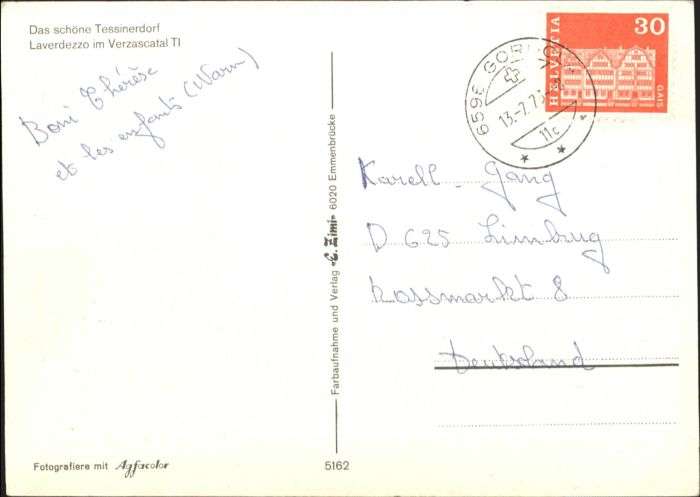 Das schöne Tessinerdorf
Laverdezzo im Verzascatal TI
Boni Thérèse
et les enfants (Warn)
HELVETIA
30
GAIS
6596 GORDOLA
13.-7.7
11c
Karell - Gang
D 625 Limbrug
Rossmarkt 8
Deutsland
Farbaufnahme und Verlag «E. Zimi» 6020 Emmenbrücke
Fotografiere mit Agfacolor
5162